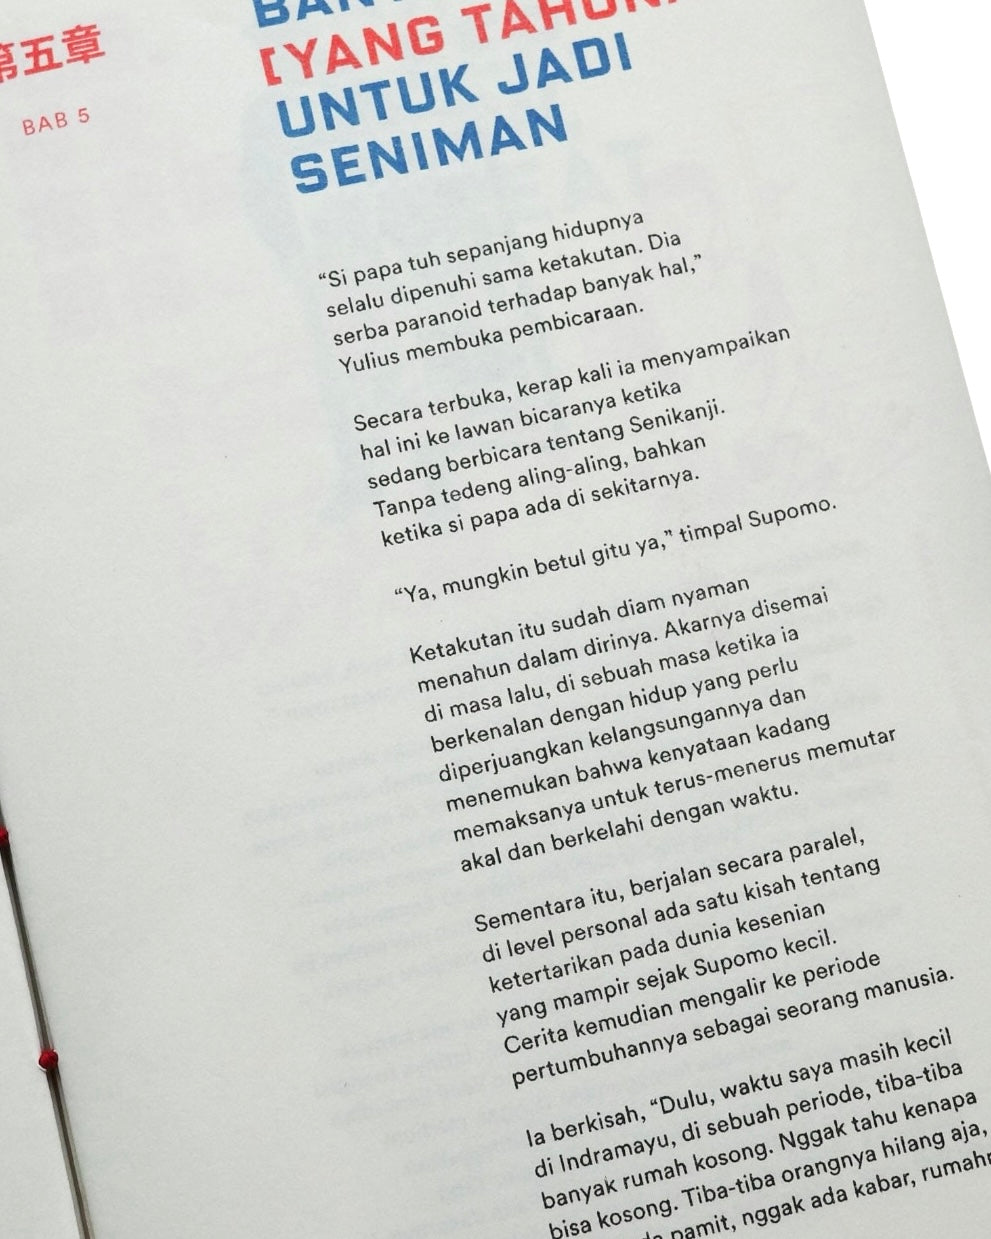 第五章
BAB 5
[YANG
UNTUK JADI
SENIMAN
“Si papa tuh sepanjang hidupnya
selalu dipenuhi sama ketakutan. Dia
serba paranoid terhadap banyak hal,”
Yulius membuka pembicaraan.
Secara terbuka, kerap kali ia menyampaikan
hal ini ke lawan bicaranya ketika
sedang berbicara tentang Senikanji.
Tanpa tedeng aling-aling, bahkan
ketika si papa ada di sekitarnya.
“Ya, mungkin betul gitu ya,” timpal Supomo.
Ketakutan itu sudah diam nyaman
menahun dalam dirinya. Akarnya disemai
di masa lalu, di sebuah masa ketika ia
berkenalan dengan hidup yang perlu
diperjuangkan kelangsungannya dan
menemukan bahwa kenyataan kadang
memaksanya untuk terus-menerus memutar
akal dan berkelahi dengan waktu.
Sementara itu, berjalan secara paralel,
di level personal ada satu kisah tentang
ketertarikan pada dunia kesenian
yang mampir sejak Supomo kecil.
Cerita kemudian mengalir ke periode
pertumbuhannya sebagai seorang manusia.
Ia berkisah, “Dulu, waktu saya masih kecil
di Indramayu, di sebuah periode, tiba-tiba
banyak rumah kosong. Nggak tahu kenapa
bisa kosong. Tiba-tiba orangnya hilang aja,
pamit, nggak ada kabar,